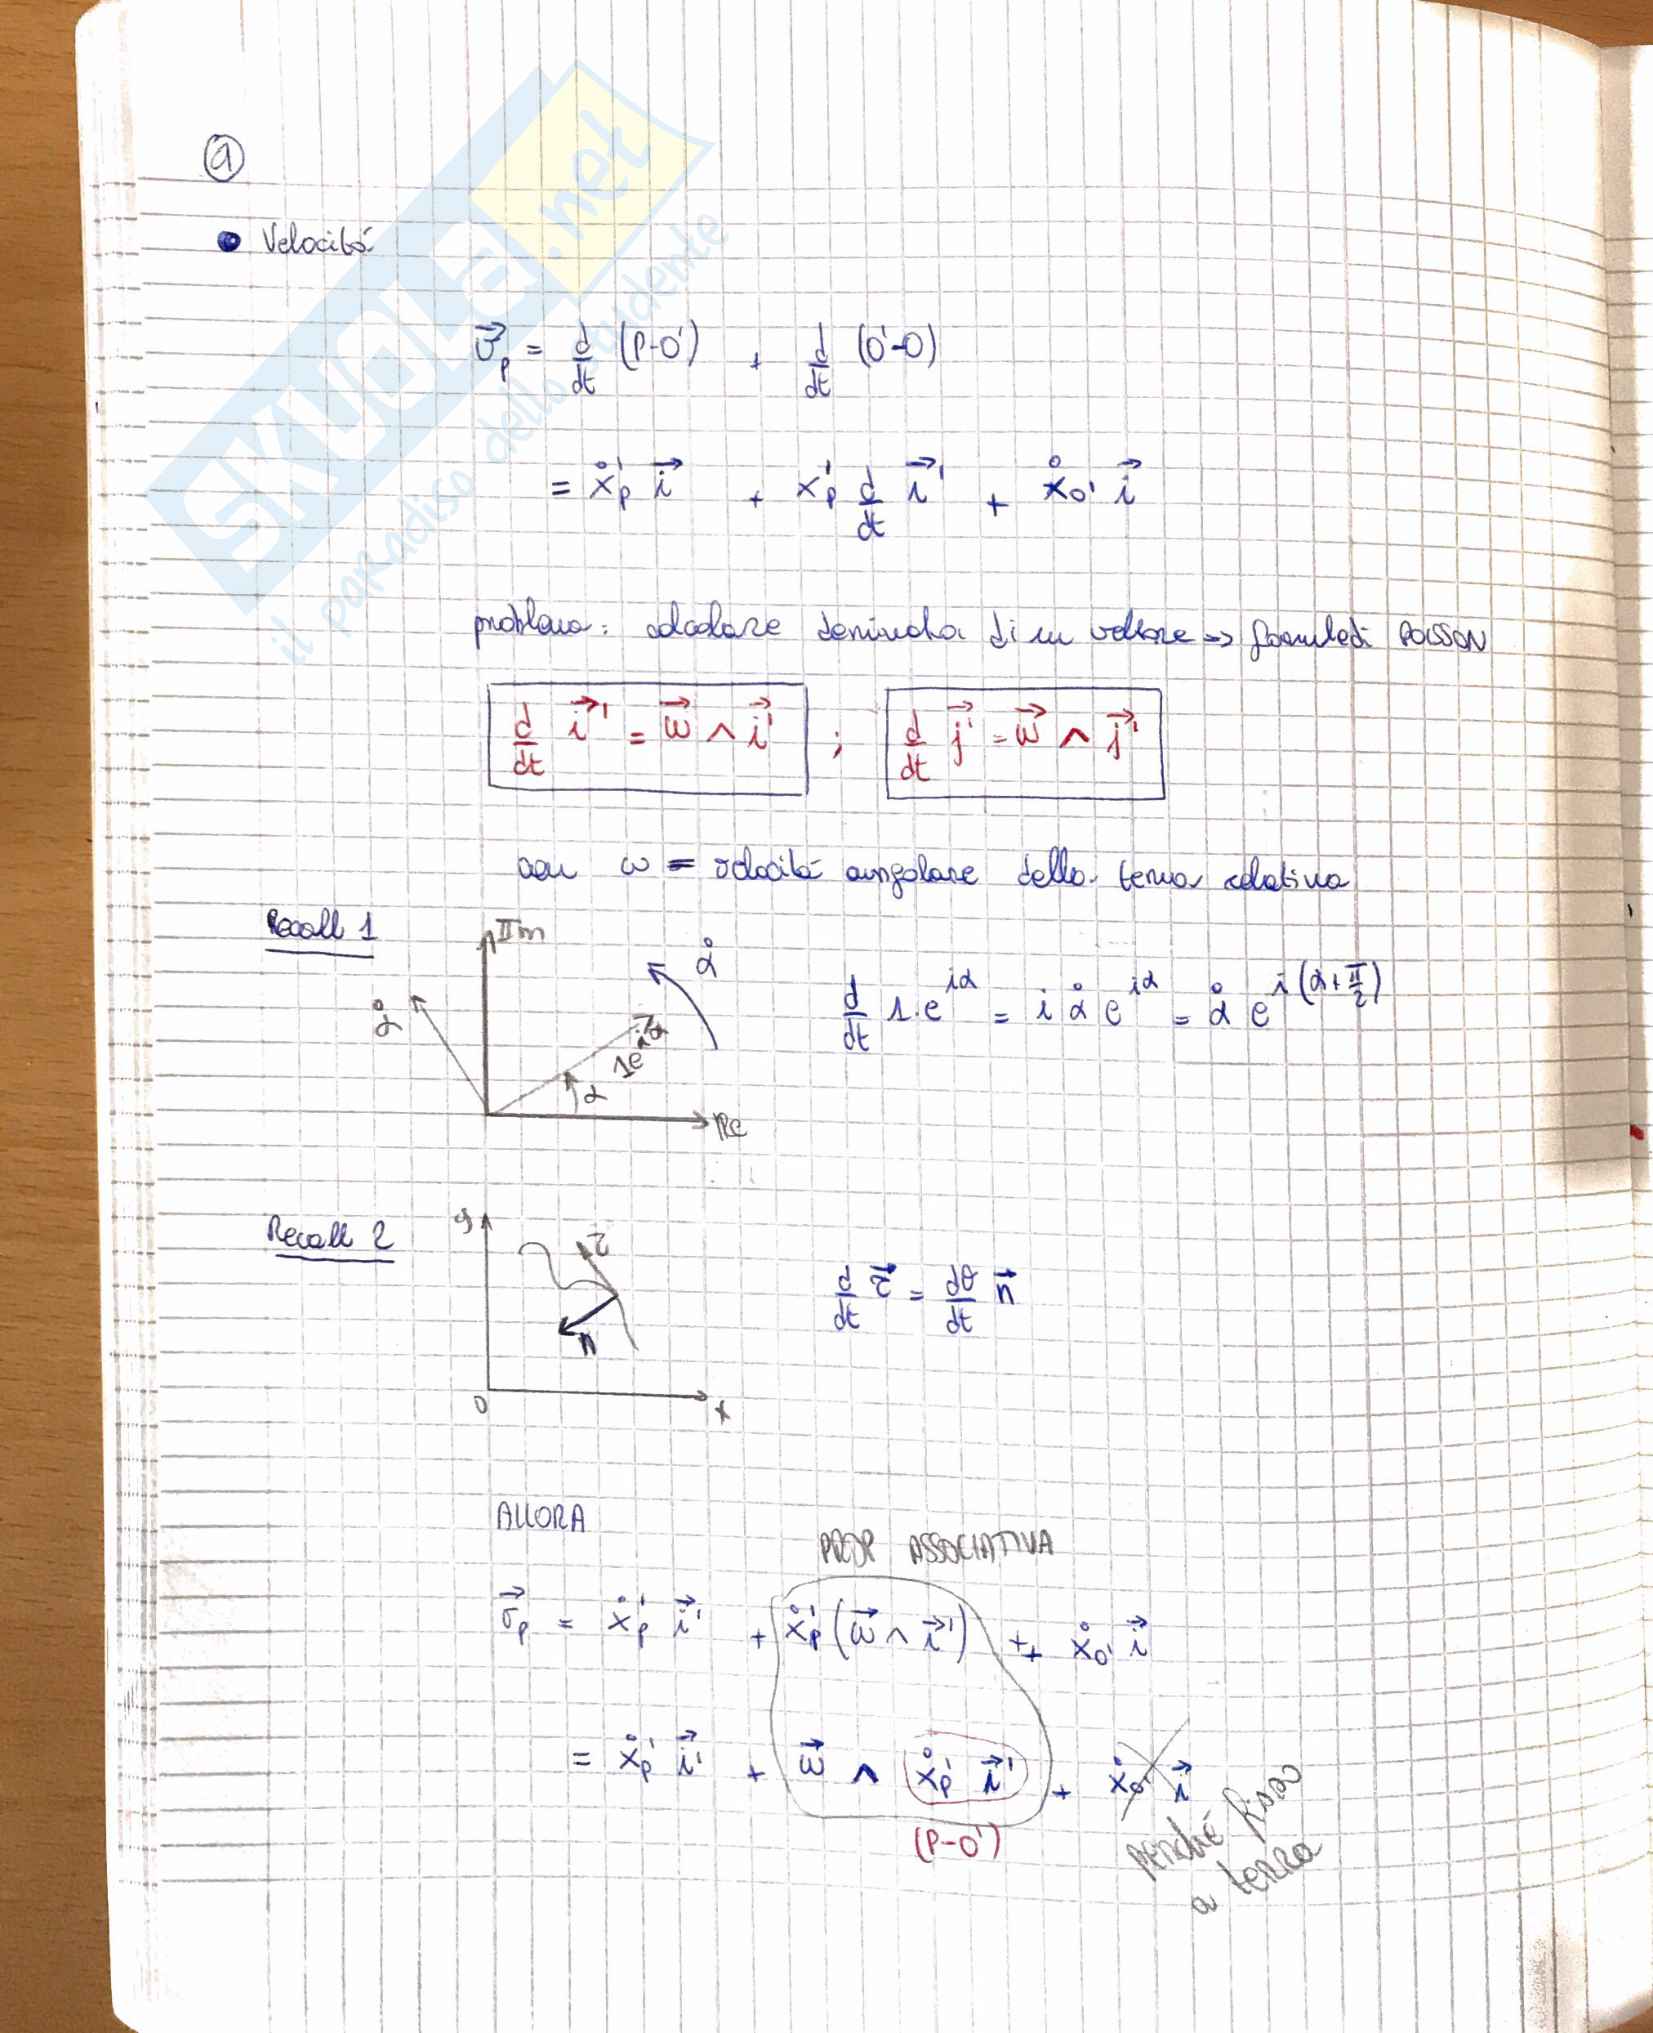 ⓐ
• Velocità
SKUOLA.net
il paradiso dello studente
v⃗p = d/dt (P-O') + d/dt (O'-O)
= ẋ'p i⃗ + x'p d/dt i⃗' + ẋo' i⃗
problema: calcolare derivata di un vettore → formule di POISSON
d/dt i⃗' = ω⃗ ∧ i⃗' ; d/dt j⃗' = ω⃗ ∧ j⃗'
con ω = velocità angolare della terna relativa
Recall 1
Im
α̇
α̇
1e^iα
α
Re
d/dt 1·e^iα = i α̇ e^iα = α̇ e^i(α+π/2)
Recall 2
y
τ
n
O
x
d/dt τ⃗ = dθ/dt n⃗
ALLORA
PROP ASSOCIATIVA
v⃗p = ẋ'p i⃗' + ẋ'p (ω⃗ ∧ i⃗') ++ ẋo' i⃗
= ẋ'p i⃗' + ω⃗ ∧ ẋ'p i⃗' + ẋo' i⃗
(P-O')
perché fisso
a terra